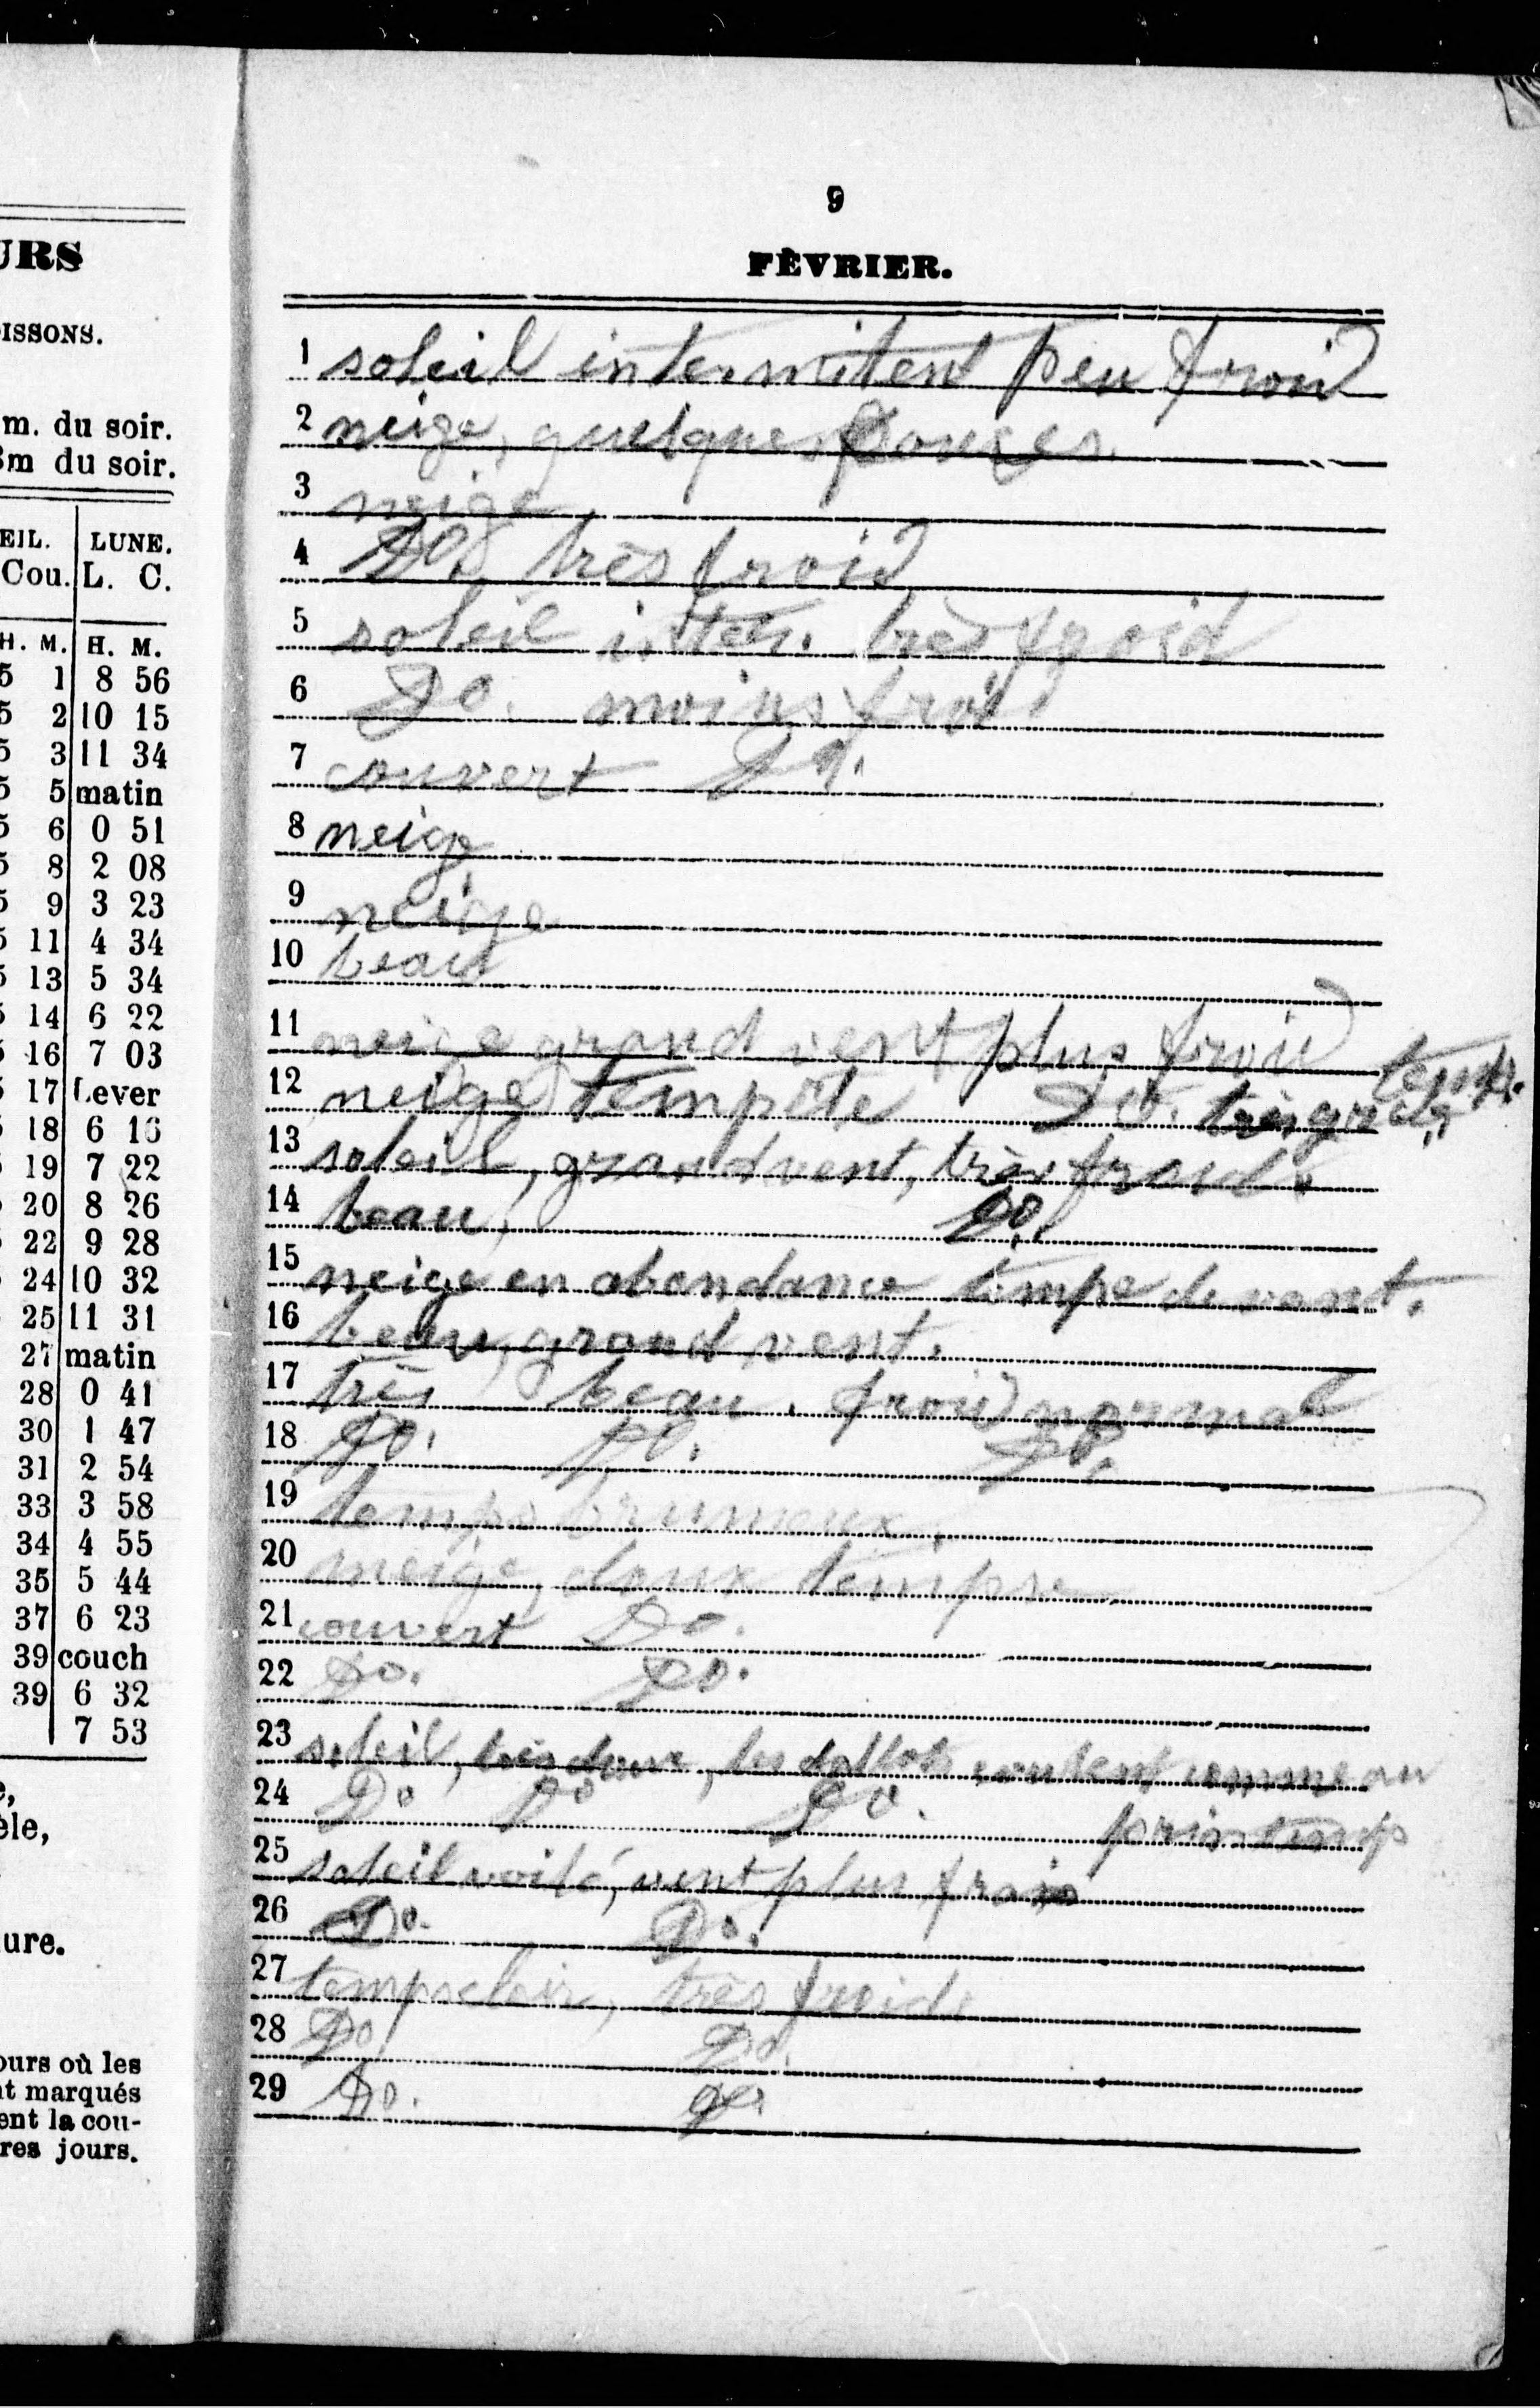 URS
ISSONS.
m. du soir.
3m du soir.
EIL. LUNE.
Cou. L. C.
H. M. H. M.
5 1 8 56
5 2 10 15
5 3 11 34
5 5 matin
5 6 0 51
5 8 2 08
5 9 3 23
5 11 4 34
5 13 5 34
5 14 6 22
5 16 7 03
5 17 Lever
5 18 6 16
5 19 7 22
5 20 8 26
5 22 9 28
5 24 10 32
25 11 31
27 matin
28 0 41
30 1 47
31 2 54
33 3 58
34 4 55
35 5 44
37 6 23
39 couch
39 6 32
7 53
e,
èle,
ure.
ours où les
nt marqués
ent la cou-
res jours.
9
FÉVRIER.
1 soleil intermitent peu froid
2 neige, quelques pouces
3 neige
4 Do. très froid
5 soleil inter. très froid
6 Do. moins froid
7 couvert Do.
8 neige
9 neige
10 beau
11 neige grand vent plus froid
12 neige tempête Do. très
13 soleil, grand vent, très froid.
14 beau, Do.
15 neige en abondance vent.
16 beau, grand vent.
17 très beau. froid normal
18 Do. Do. Do.
19 temps brumeux.
20 neige, doux temps
21 couvert Do.
22 Do. Do.
23 soleil, très doux, les coulent comme au
printemps
24 Do Do Do.
25 soleil voilé, vent plus frais
26 Do. Do.
27 temps clair, très froid.
28 Do Do.
29 Do. Do.